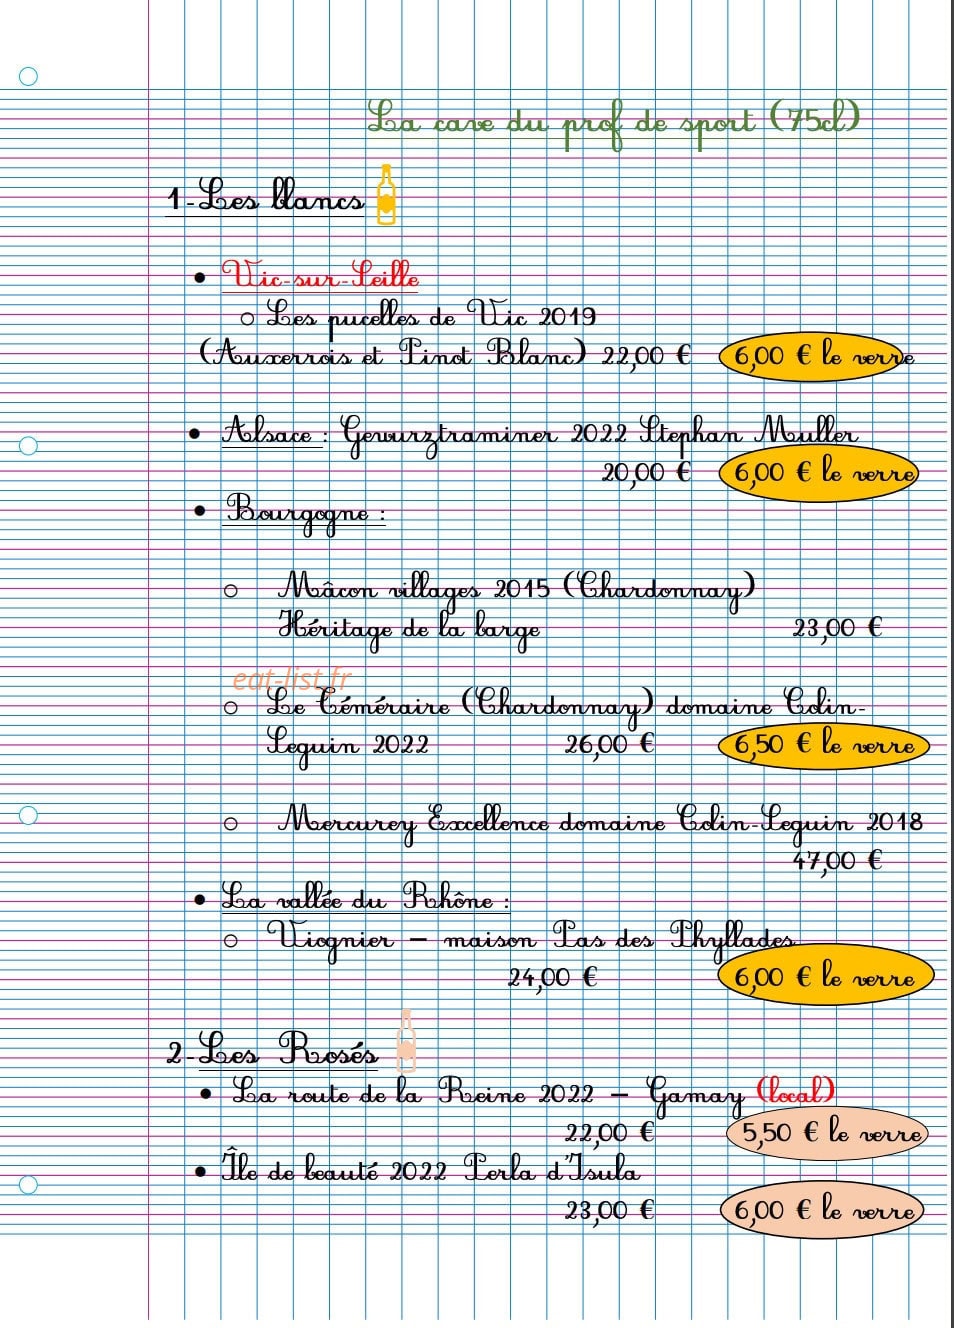 La cave du prof de sport (75cl)
1-Les blancs
• Vic-sur-Seille
o Les pucelles de Vic 2019
(Auxerrois et Pinot Blanc) 22,00 € 6,00 € le verre
• Alsace : Gewurztraminer 2022 Stephan Muller
20,00 € 6,00 € le verre
• Bourgogne :
o Mâcon villages 2015 (Chardonnay)
Héritage de la barge 23,00 €
eat-list.fr
o Le Téméraire (Chardonnay) domaine Colin-
Seguin 2022 26,00 € 6,50 € le verre
o Mercurey Excellence domaine Colin-Seguin 2018
47,00 €
• La vallée du Rhône :
o Viognier – maison Pas des Phyllades
24,00 € 6,00 € le verre
2-Les Rosés
• La route de la Reine 2022 – Gamay (local)
22,00 € 5,50 € le verre
• Île de beauté 2022 Perla d'Isula
23,00 € 6,00 € le verre